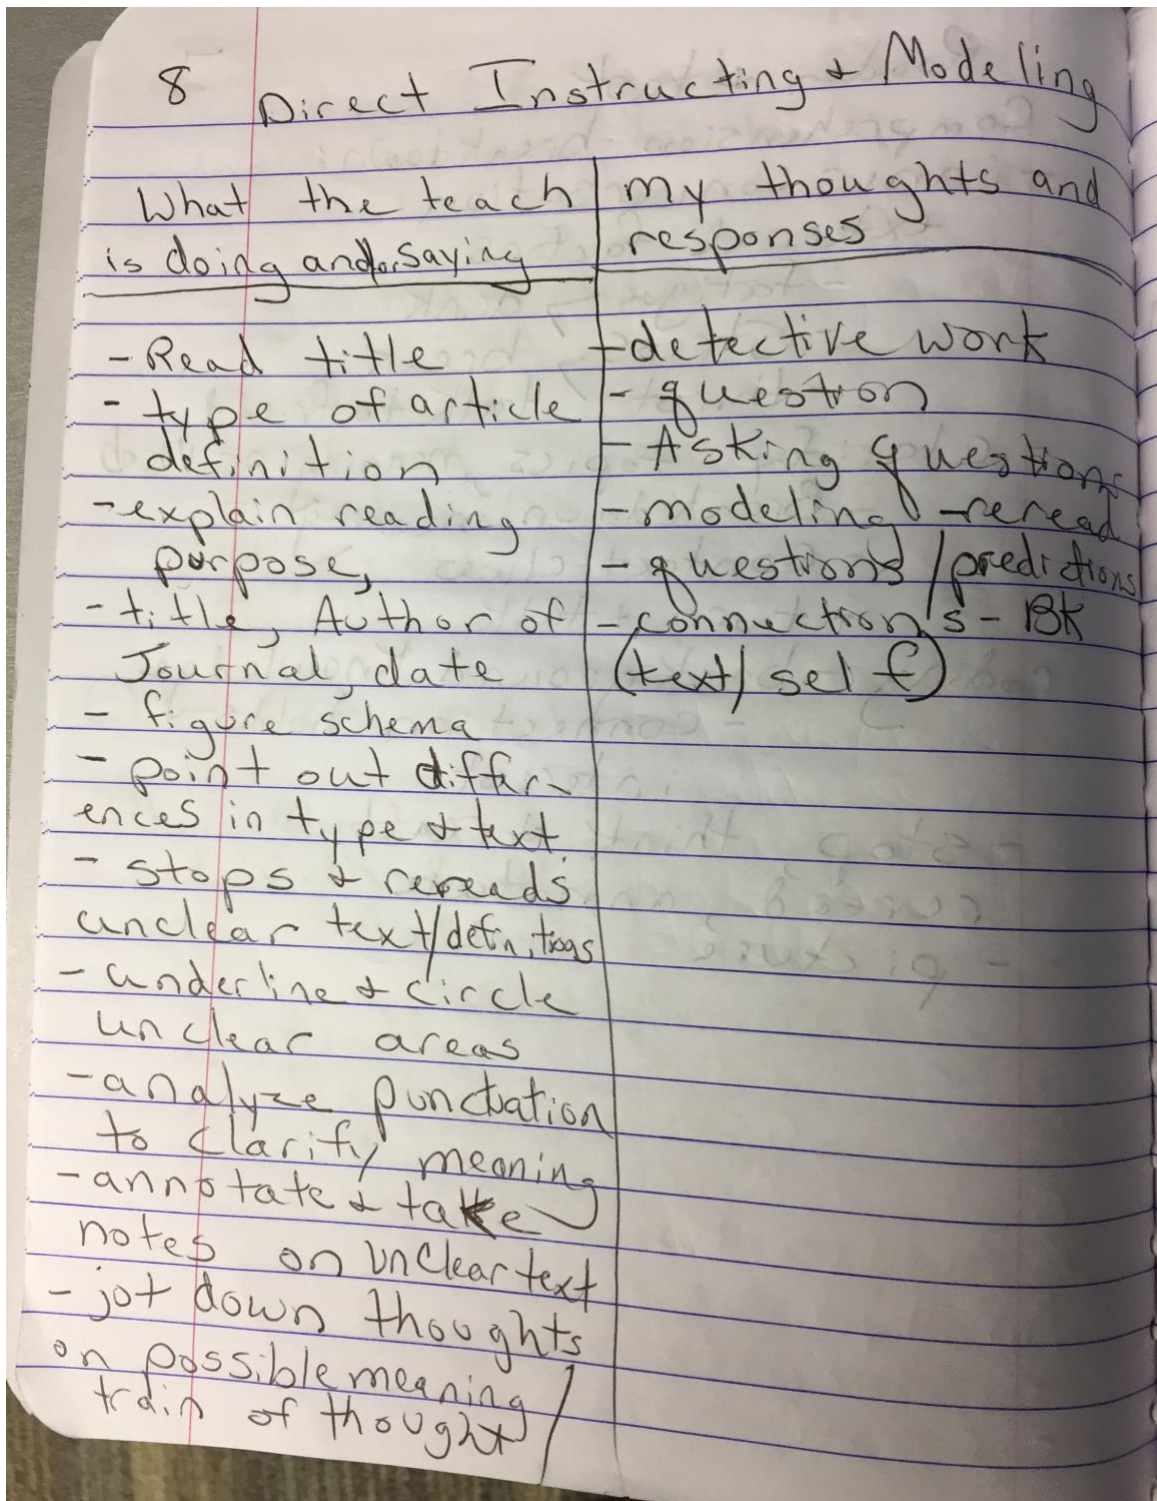 8 Direct Instructing & Modeling
What the teach
is doing and or saying
- Read title
- type of article
definition
- explain reading
purpose,
- title, Author of
Journal, date
- figure schema
- point out differ-
ences in type & text.
- stops & rereads
unclear text/definitions
- underline & circle
unclear areas
- analyze punctuation
to clarify meaning
- annotate & take
notes on unclear text
- jot down thoughts
on possible meaning /
train of thought
my thoughts and
responses
- detective work
- question
- Asking questions
- modeling - reread
- questions / predictions
- connections - BK
(text / self)